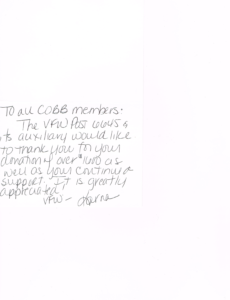 To all COBB members.
The VFW Post 6645 &
its auxiliary would like
to thank you for your
donation of over $1600 as
well as your continued
support. It is greatly
appreciated
VFW -